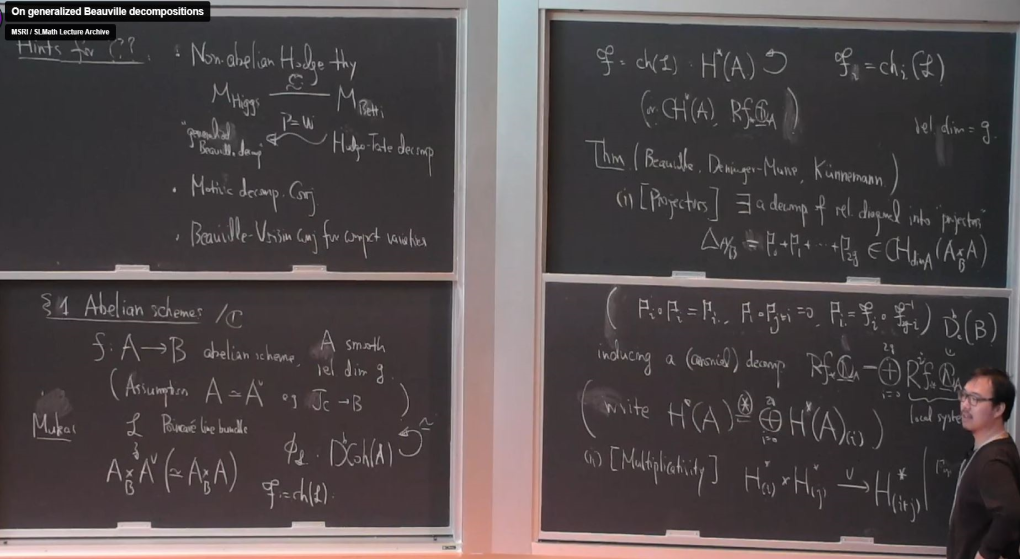 On generalized Beauville decompositions
MSRI / SLMath Lecture Archive
Hints for C??
· Non-abelian Hodge thy
M_Higgs ≅ M_Betti
"generalized Beauville decomp" P=W Hodge-Tate decomp
· Motivic decomp. Conj
· Beauville-Voisin Conj for compact varieties
§1 Abelian schemes /ℂ
f: A → B abelian scheme, A smooth
rel dim g.
(Assumption A ≃ A^∨ eg J_C → B)
Mukai ℒ Poincaré line bundle
A ×_B A^∨ (≃ A ×_B A)
φ_ℒ : D^b Coh(A) ↺ ≃
𝔉 := ch(ℒ).
𝔉 = ch(ℒ) : H^*(A) ↺ 𝔉_i = ch_i(ℒ)
(or CH^*(A), Rf_*ℚ_A) rel dim = g.
Thm (Beauville, Deninger-Murre, Künnemann)
(i) [Projectors] ∃ a decomp of rel. diagonal into "projectors"
Δ_{A/B} = 𝔭_0 + 𝔭_1 + ··· + 𝔭_{2g} ∈ CH_{dim A}(A ×_B A)
(𝔭_i ∘ 𝔭_i = 𝔭_i, 𝔭_i ∘ 𝔭_{j≠i} = 0, 𝔭_i = 𝔉_i ∘ 𝔉^{-1}_{2g-i}) D^b_c(B)
inducing a (canonical) decomp Rf_*ℚ_A = ⊕_{i=0}^{2g} R^i f_*ℚ_A
local system
(write H^*(A) (*)= ⊕_{i=0}^{2g} H^*(A)_{(i)})
(ii) [Multiplicativity] H^*_{(i)} × H^*_{(j)} →^∪ H^*_{(i+j)}